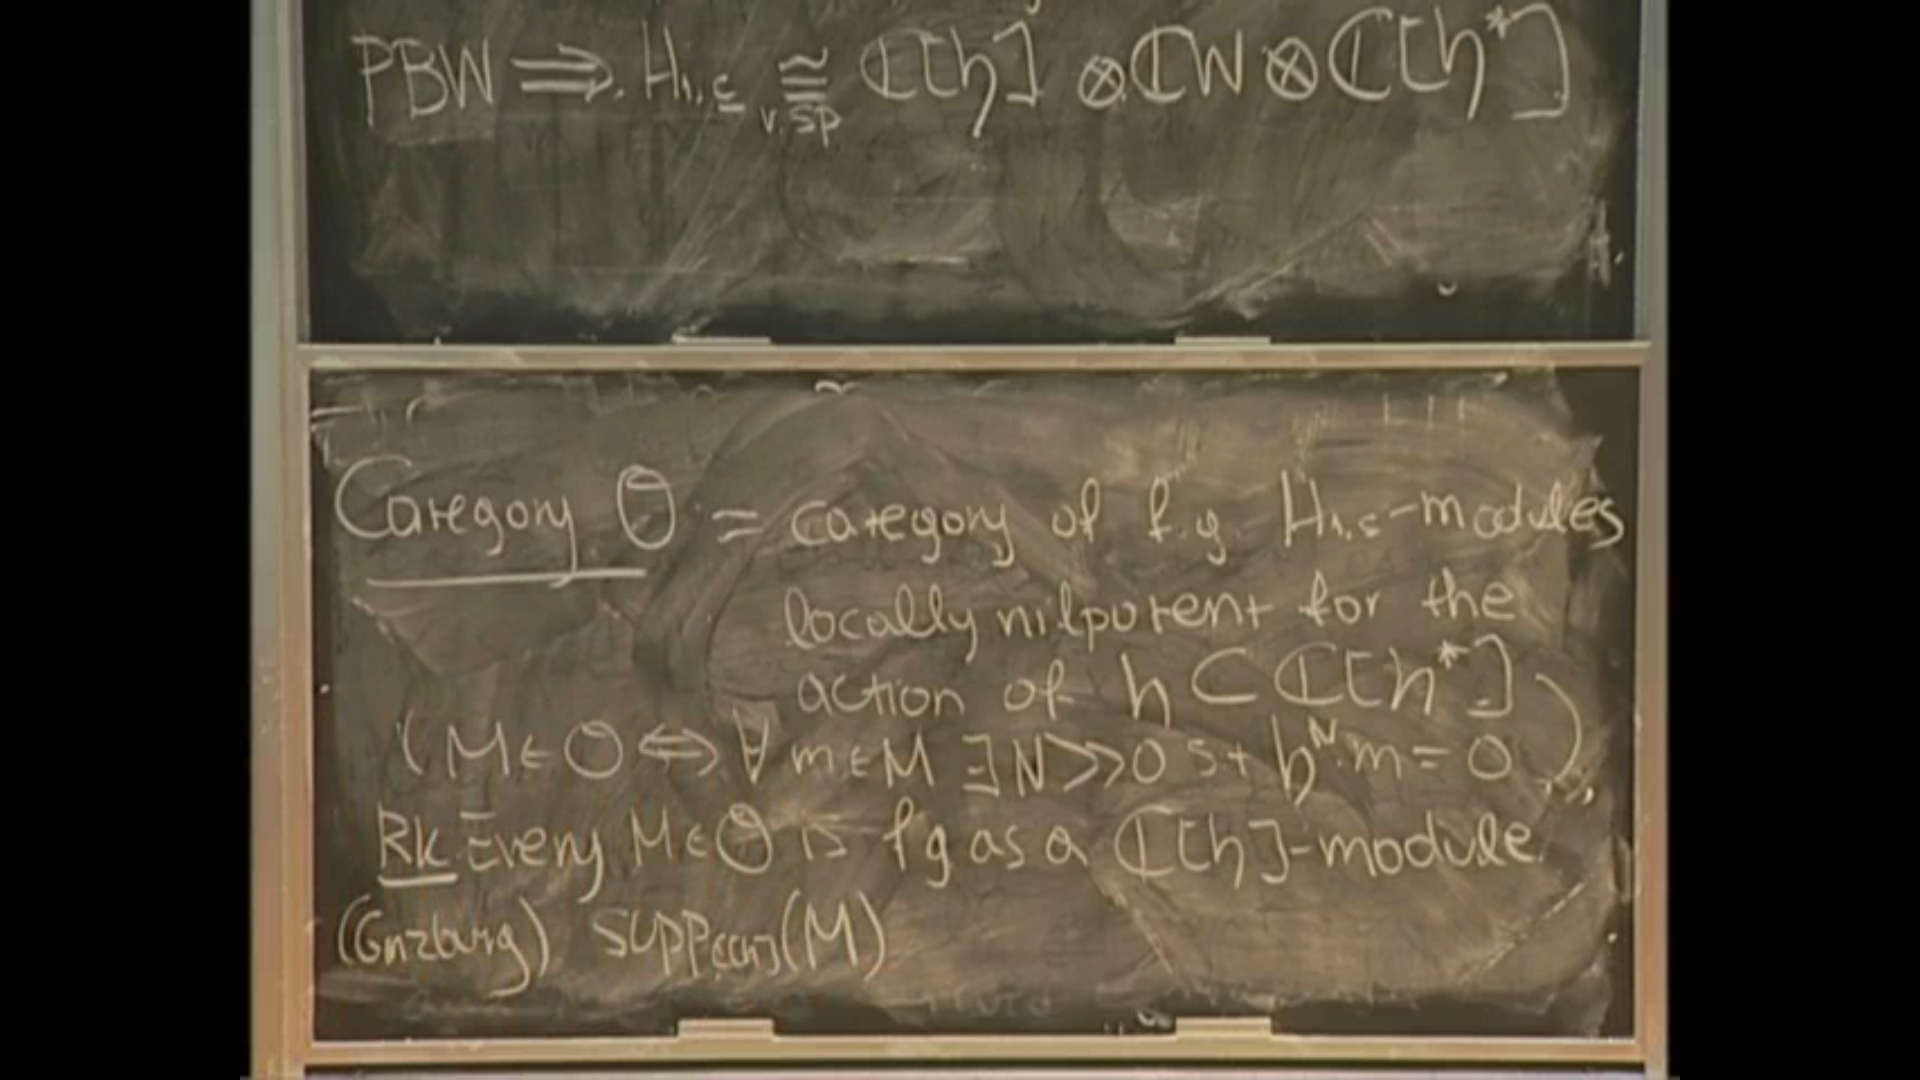 PBW ⟹ H₁,c ≅ v.sp ℂ[h] ⊗ ℂW ⊗ ℂ[h*]
Category O = category of f.g. H₁,c-modules
locally nilpotent for the
action of h ⊂ ℂ[h*]
(M ∈ O ⟺ ∀ m ∈ M ∃ N >> 0 s.t h^N · m = 0)
Rk Every M ∈ O is fg as a ℂ[h]-module.
(Ginzburg) supp ℂ[h] (M)